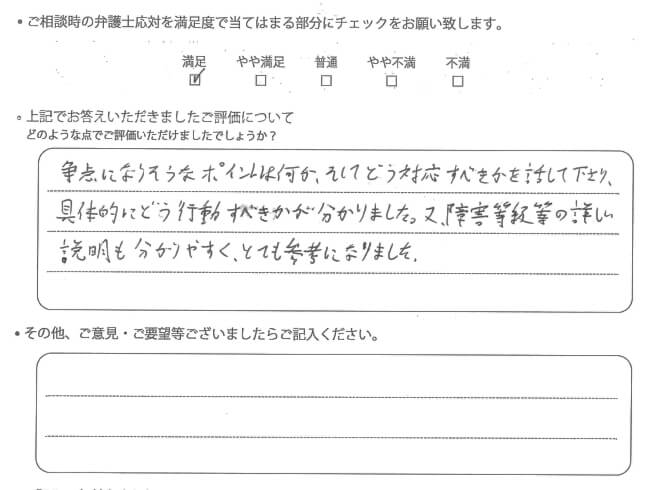 • ご相談時の弁護士応対を満足度で当てはまる部分にチェックをお願い致します。
満足 やや満足 普通 やや不満 不満
☑ □ □ □ □
。上記でお答えいただきましたご評価について
どのような点でご評価いただけましたでしょうか？
争点になりそうなポイントは何か、そしてどう対応すべきかを話して下さり、
具体的にどう行動すべきかが分かりました。又、障害等級等の詳しい
説明も分かりやすく、とても参考になりました。
• その他、ご意見・ご要望等ございましたらご記入ください。